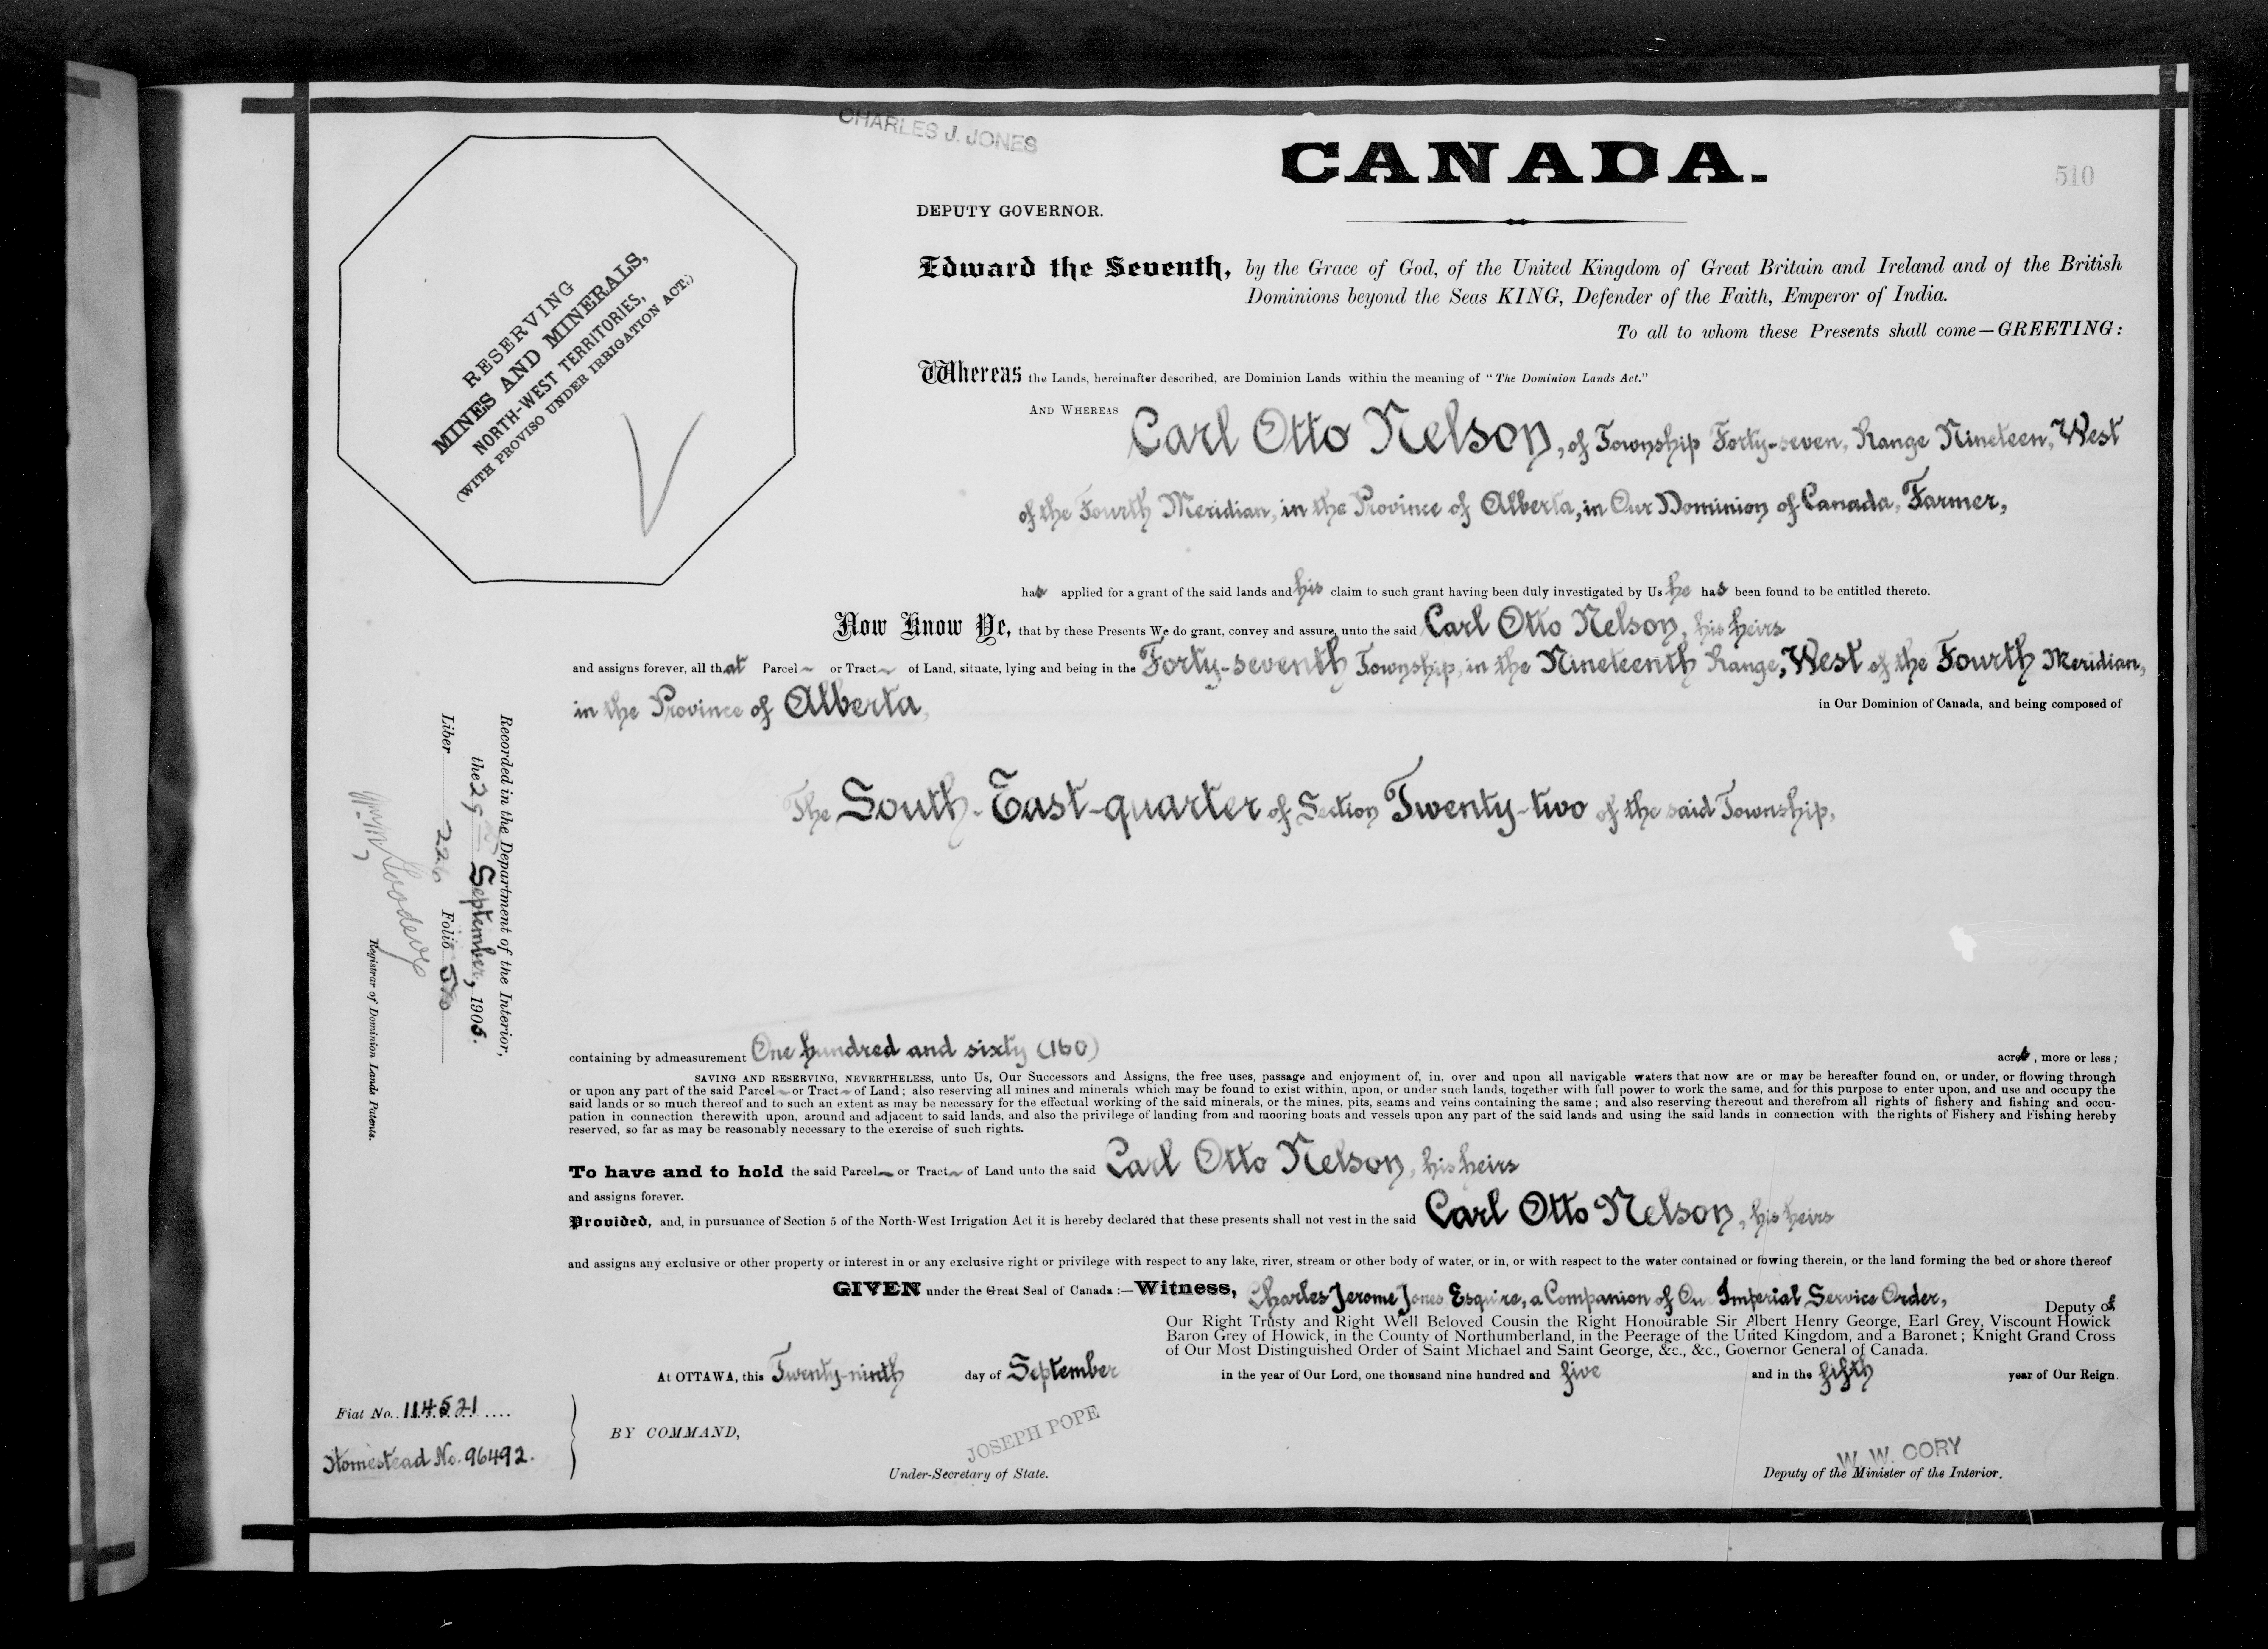 CHARLES J. JONES
CANADA.
510
DEPUTY GOVERNOR.
RESERVING
MINES AND MINERALS,
NORTH-WEST TERRITORIES,
(WITH PROVISO UNDER IRRIGATION ACT.)
Edward the Seventh, by the Grace of God, of the United Kingdom of Great Britain and Ireland and of the British
Dominions beyond the Seas KING, Defender of the Faith, Emperor of India.
To all to whom these Presents shall come—GREETING:
Whereas the Lands, hereinafter described, are Dominion Lands within the meaning of "The Dominion Lands Act."
AND WHEREAS Carl Otto Nelson, of Township Forty-seven, Range Nineteen, West
of the Fourth Meridian, in the Province of Alberta, in Our Dominion of Canada, Farmer,
has applied for a grant of the said lands and his claim to such grant having been duly investigated by Us he has been found to be entitled thereto.
Now Know Ye, that by these Presents We do grant, convey and assure, unto the said Carl Otto Nelson, his heirs
and assigns forever, all that Parcel or Tract of Land, situate, lying and being in the Forty-seventh Township, in the Nineteenth Range, West of the Fourth Meridian,
in the Province of Alberta, in Our Dominion of Canada, and being composed of
The South-East-quarter of Section Twenty-two of the said Township,
Recorded in the Department of the Interior,
the 29th September, 1905.
Liber 226 Folio 510
Registrar of Dominion Lands Patents.
containing by admeasurement One hundred and sixty (160) acres, more or less;
SAVING AND RESERVING, NEVERTHELESS, unto Us, Our Successors and Assigns, the free uses, passage and enjoyment of, in, over and upon all navigable waters that now are or may be hereafter found on, or under, or flowing through
or upon any part of the said Parcel or Tract of Land; also reserving all mines and minerals which may be found to exist within, upon, or under such lands, together with full power to work the same, and for this purpose to enter upon, and use and occupy the
said lands or so much thereof and to such an extent as may be necessary for the effectual working of the said minerals, or the mines, pits, seams and veins containing the same; and also reserving thereout and therefrom all rights of fishery and fishing and occu-
pation in connection therewith upon, around and adjacent to said lands, and also the privilege of landing from and mooring boats and vessels upon any part of the said lands and using the said lands in connection with the rights of Fishery and Fishing hereby
reserved, so far as may be reasonably necessary to the exercise of such rights.
To have and to hold the said Parcel or Tract of Land unto the said Carl Otto Nelson, his heirs
and assigns forever.
Provided, and, in pursuance of Section 5 of the North-West Irrigation Act it is hereby declared that these presents shall not vest in the said Carl Otto Nelson, his heirs
and assigns any exclusive or other property or interest in or any exclusive right or privilege with respect to any lake, river, stream or other body of water, or in, or with respect to the water contained or fowing therein, or the land forming the bed or shore thereof
GIVEN under the Great Seal of Canada:—Witness, Charles Jerome Jones Esquire, a Companion of Our Imperial Service Order, Deputy of
Our Right Trusty and Right Well Beloved Cousin the Right Honourable Sir Albert Henry George, Earl Grey, Viscount Howick
Baron Grey of Howick, in the County of Northumberland, in the Peerage of the United Kingdom, and a Baronet; Knight Grand Cross
of Our Most Distinguished Order of Saint Michael and Saint George, &c., &c., Governor General of Canada.
At OTTAWA, this Twenty-ninth day of September in the year of Our Lord, one thousand nine hundred and five and in the fifth year of Our Reign.
Fiat No. 114521
Homestead No. 96492.
BY COMMAND,
JOSEPH POPE
Under-Secretary of State.
W. W. CORY
Deputy of the Minister of the Interior.